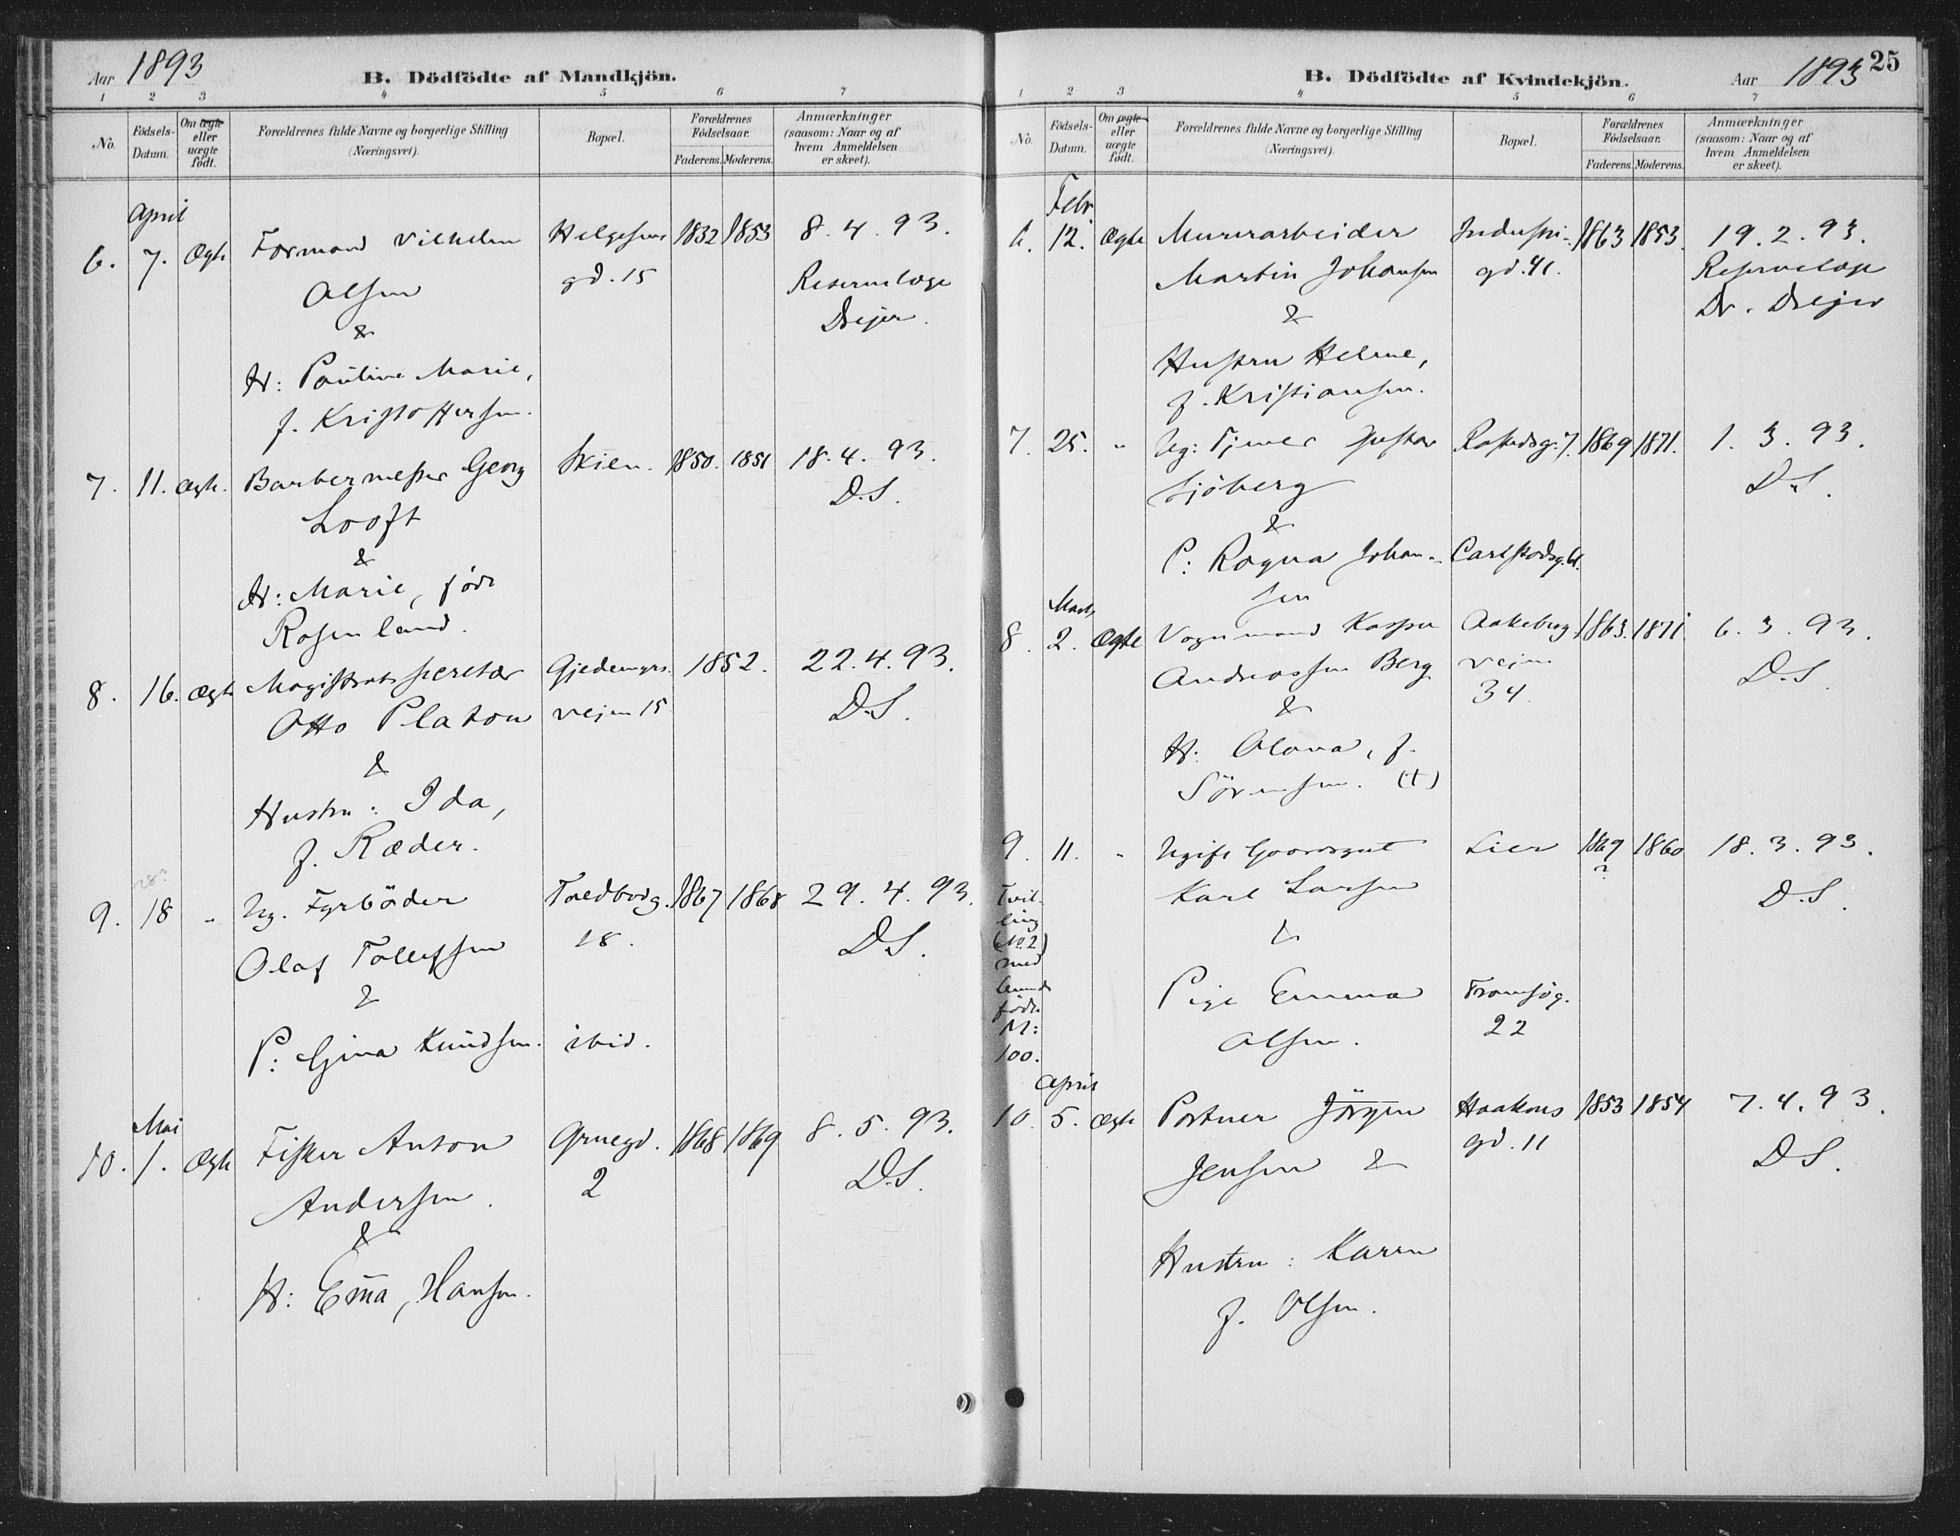 Aar 1893
B. Dödfödte af Mandkjön.
1 2 3 4 5 6 7
No.
Födsels-
Datum.
Om ægte
eller
uægte
födt.
Forældrenes fulde Navne og borgerlige Stilling
(Næringsvei).
Bopæl.
Forældrenes
Födselsaar.
Faderens. Moderens.
Anmærkninger
(saasom: Naar og af
hvem Anmeldelsen
er skeet).
April
6. 7. Ægte Formand Vilhelm Helgesens 1832 1853 8.4.93.
Olsen gd. 15 Reservelæge
& Drejer.
H: Pauline Marie,
f. Kristoffersen.
7. 11. Ægte. Barbermester Georg Skien. 1850. 1851 18.4.93.
Looft D.S.
&
H: Marie, född
Rosenland.
8. 16. Ægte Magistratssecretær Gjedemyrs- 1852. 22.4.93.
Otto Platou veien 15 D.S.
&
Hustru: Ida,
f. Ræder.
28?
9. 18 " Ug. Fyrböder Toldbodg. 1867 1868 29.4.93.
Olaf Tollefsen 28. D.S.
&
P: Gina Knudsen. ibid.
Mai
10. 1. Ægte Fisker Anton Gruegd. 1868 1869 8.5.93.
Andersen. 2 D.S.
&
H: Emma, Hansen.
B. Dödfödte af Kvindekjön.
Aar 1893 25
1 2 3 4 5 6 7
No.
Födsels-
Datum.
Om ægte
eller
uægte
födt.
Forældrenes fulde Navne og borgerlige Stilling
(Næringsvei).
Bopæl.
Forældrenes
Födselsaar.
Faderens. Moderens.
Anmærkninger
(saasom: Naar og af
hvem Anmeldelsen
er skeet).
Febr.
6. 12. Ægte Murerarbeider Industri- 1863 1853. 19.2.93.
Martin Johansen gd. 41. Reservelæge
& Dr. Drejer
Hustru Helene,
f. Kristiansen.
7. 25. " Ug: Tjener Gustav 7. 1869 1871. 1.3.93.
Sjöberg D.S.
&
P: Ragna Johan- Carlstadsg.
sen
Marts
8. 2. Ægte Vognmand Kasper Aakeberg 1863. 1871 6.3.93.
Andreassen Berg veien D.S.
& 34.
H. Olava, f.
Sörensen. (†)
9. 11. " Ugift Gaardsgut Lier 1869 1860 18.3.93.
Karl Larsen ? D.S.
&
Pige Emma Tromsög.
Olsen. 22
Tvil-
ling
(No. 2)
med
levende
födte
M:
100.
April
10. 5. Ægte Portner Jörgen Haakons 1853 1854 7.4.93.
Jensen & gd. 11 D.S.
Hustru: Karen
f. Olsen.